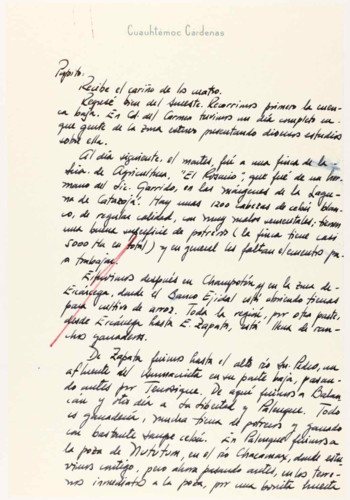 Cuauhtémoc Cárdenas
Papito:
Recibe el cariño de los cuatro.
Regresé bien del sureste. Recorrimos primero la cuen-
ca baja. En Cd. del Carmen tuvimos un día completo en
que gente de la zona estuvo presentando diversos estudios
sobre ella.
Al día siguiente, el martes, fuí a una finca de la
Sría. de Agricultura, "El Rosario", que fué de un her-
mano del Lic. Garrido, en las márgenes de la Lagu-
na de Catazajá. Hay unas 1200 cabezas de cebú blan-
co, de regular calidad, con muy malos sementales; tienen
una buena superficie de potreros (la finca tiene casi
5000 Ha en total) y en general les faltan elementos pa-
ra trabajar.
Estuvimos después en Champotón y en la zona de
Escárcega, donde el Banco Ejidal está ubicando tierras
para cultivo de arroz. Toda la región, por otra parte,
desde Escárcega hasta E. Zapata, está llena de ran-
chos ganaderos.
De Zapata fuimos hasta el alto río Sn. Pedro, un
afluente del Usumacinta en su parte baja, pasan-
do antes por Tenosique. De aquí fuimos a Balan-
cán y otro día a La Libertad y Palenque. Todo
es ganadería, mucha tierra de potreros y ganado
con bastante sangre cebú. En Palenque fuimos a
la poza de Nututún, en el río Chacamax, donde estu-
vimos contigo, pero ahora pasando antes, en los terre-
nos inmediatos a la poza, por una bonita huerta